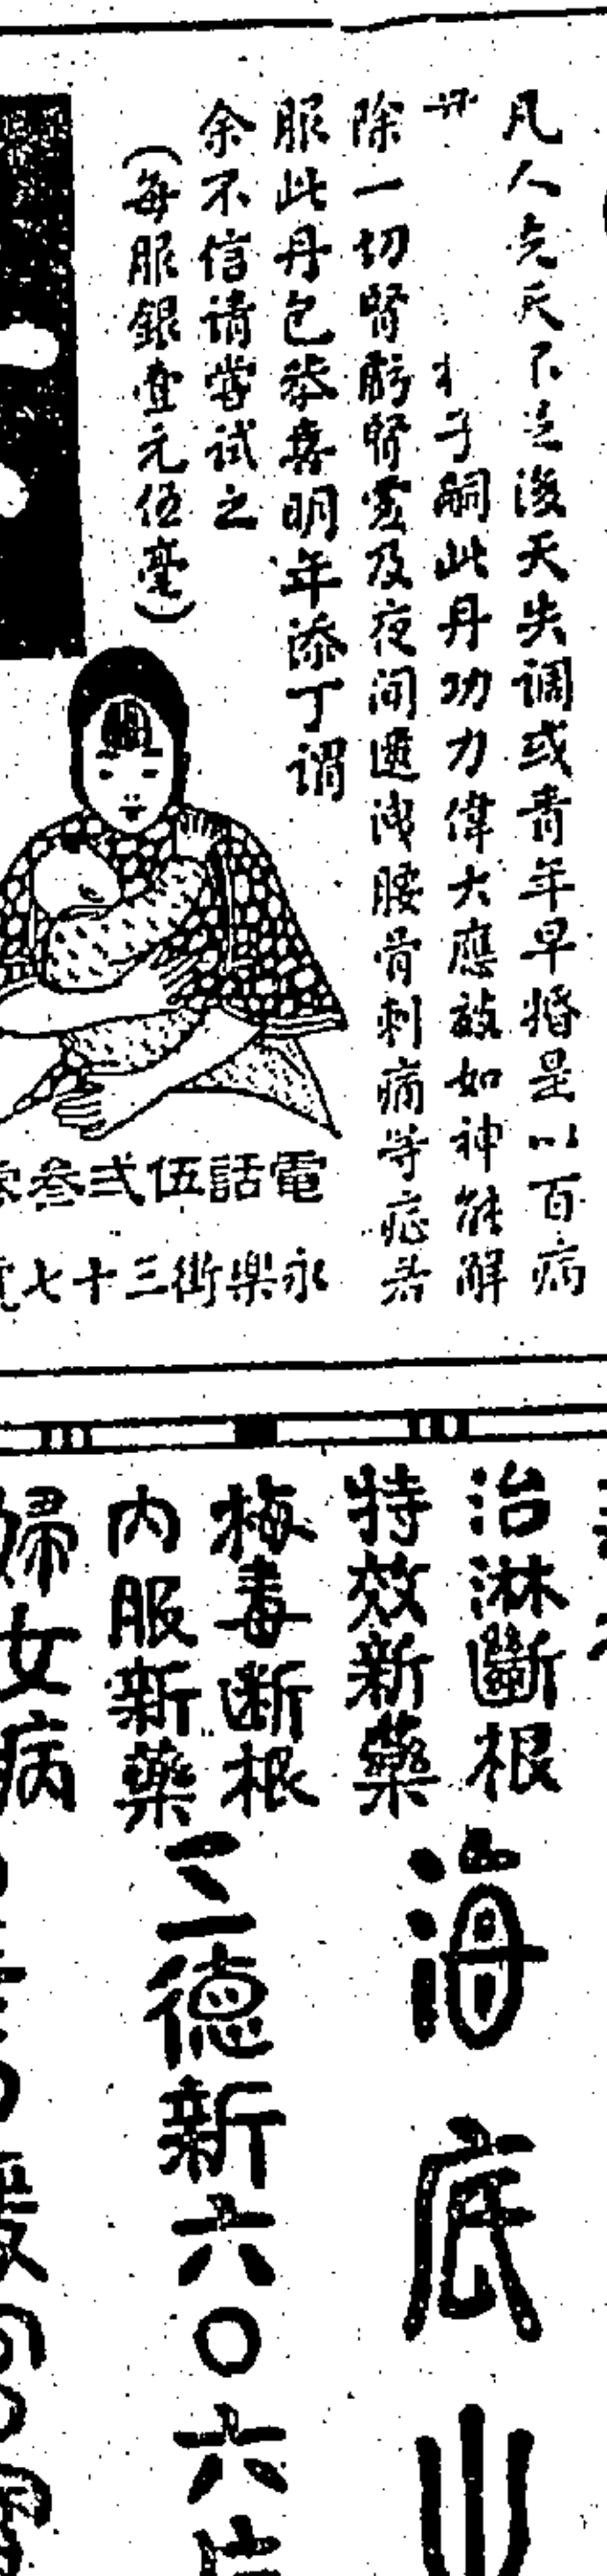 凡人先天不足後天失調或青年早婚是以百病
子嗣此丹功力偉大應效如神能解
除一切腎虧腎虛及夜間遺洩腰骨刺痛等症若
服此丹包恭喜明年添丁謂
余不信请嘗試之
(每服銀壹元伍毫)
電話伍弍叁
永樂街三十七號
治淋斷根
特效新藥
海底
梅毒断根
内服新藥
三德新六〇六片
婦女病